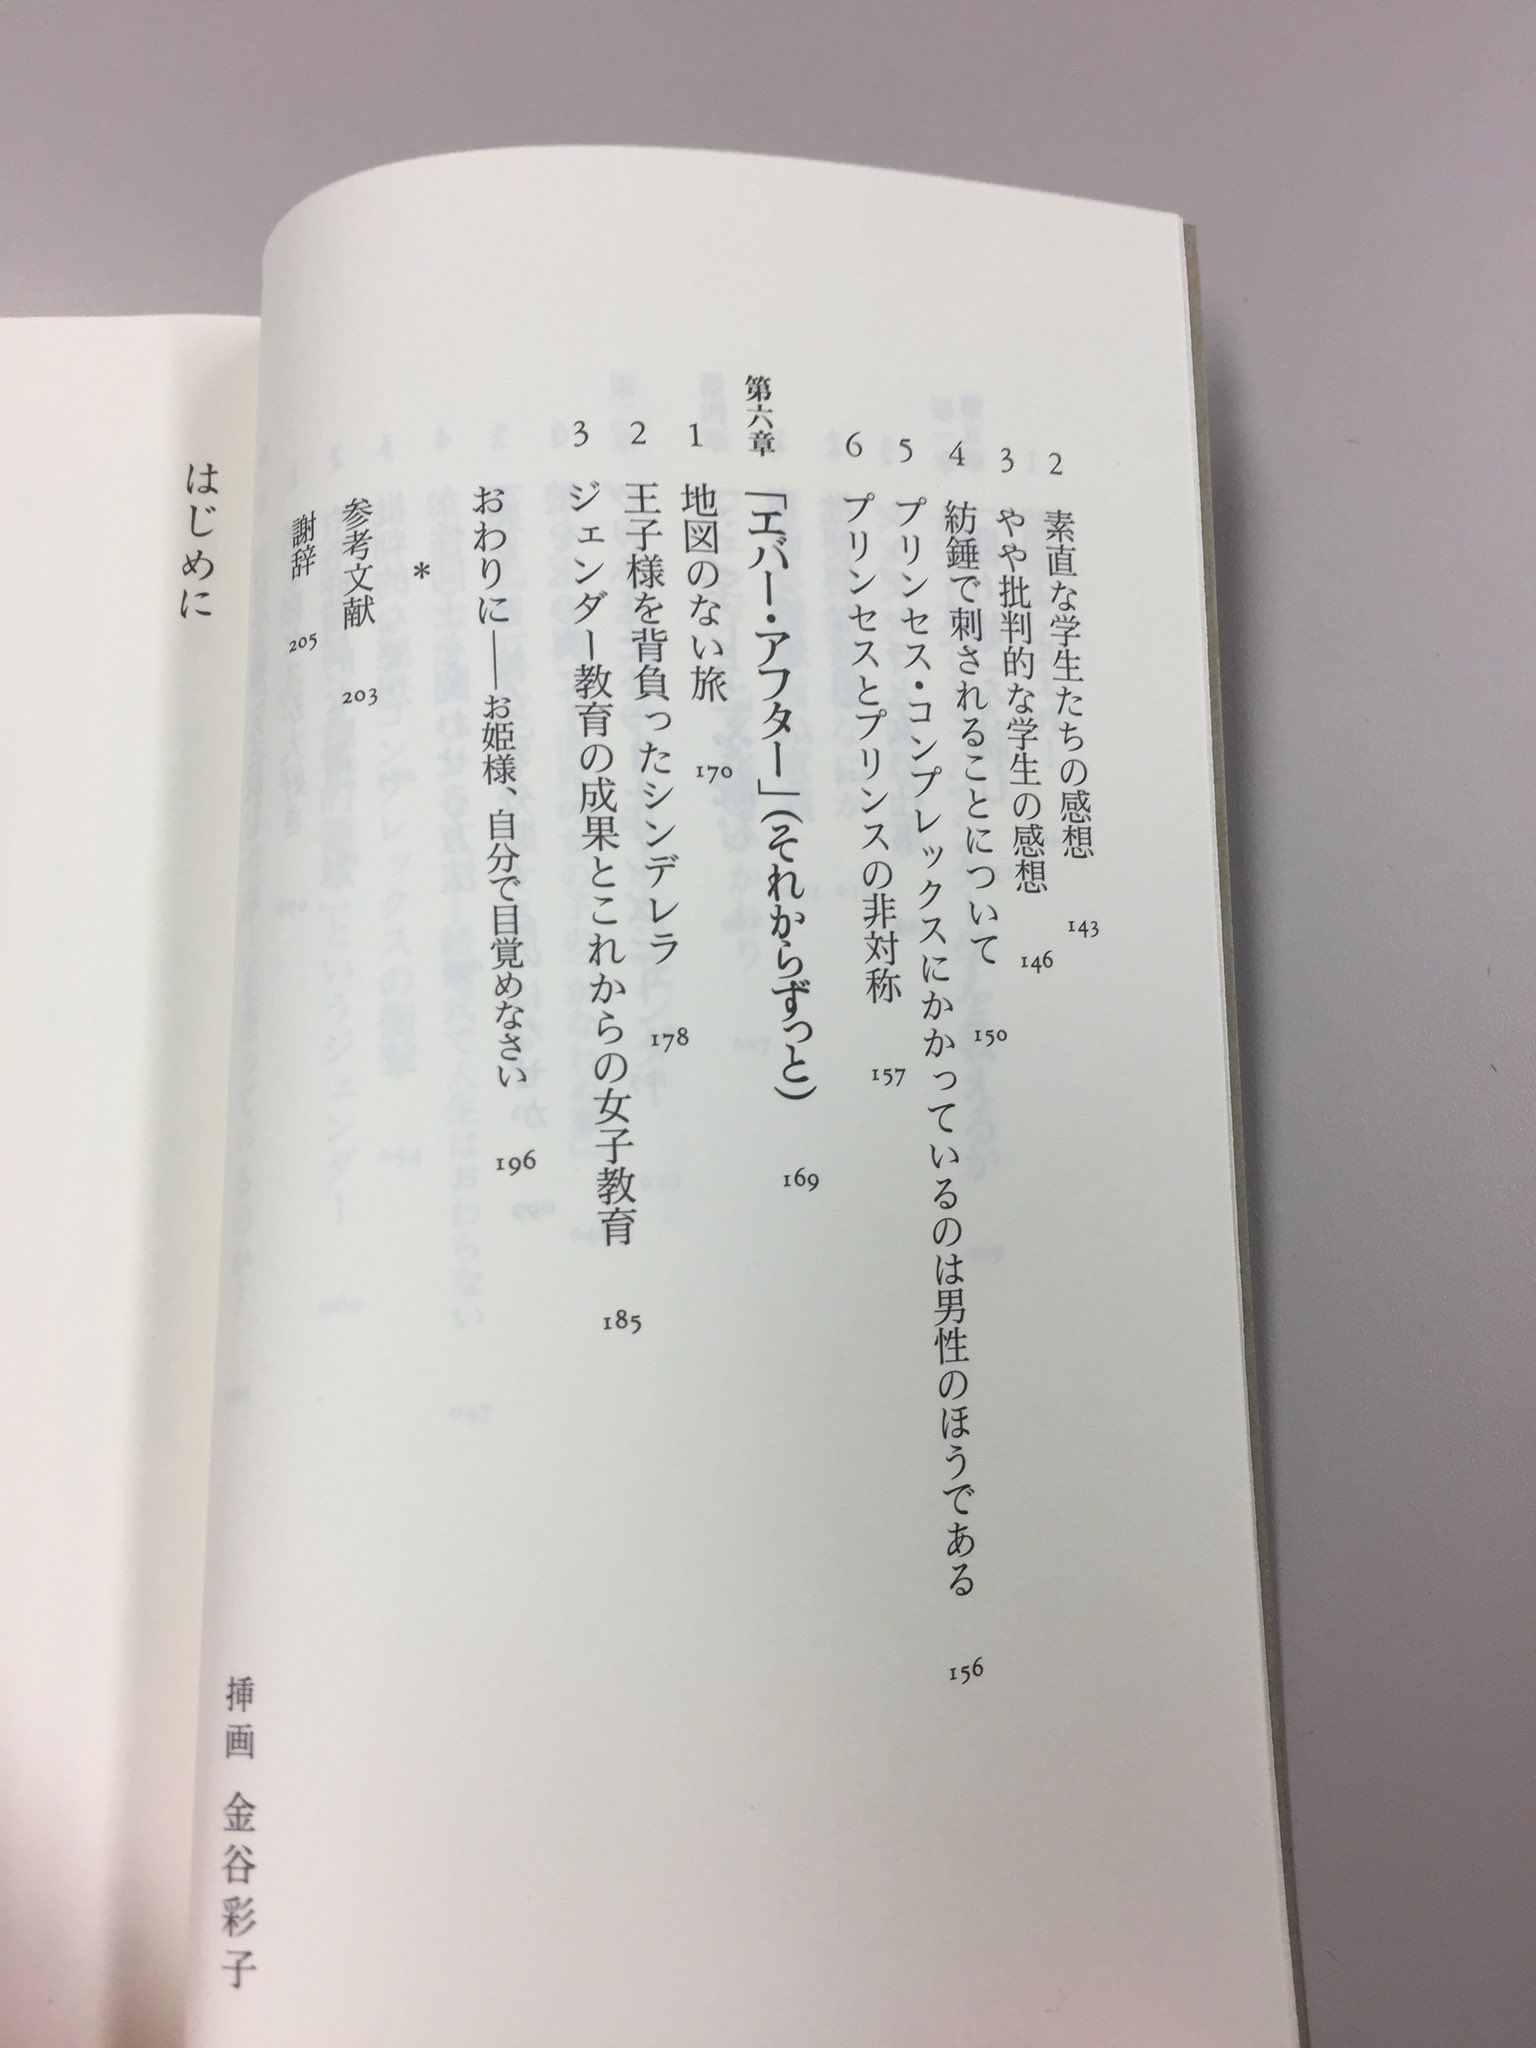 2 素直な学生たちの感想 143
3 やや批判的な学生の感想 146
4 紡錘で刺されることについて 150
5 プリンセス・コンプレックスにかかっているのは男性のほうである 156
6 プリンセスとプリンスの非対称 157
第六章 「エバー・アフター」(それからずっと) 169
1 地図のない旅 170
2 王子様を背負ったシンデレラ 178
3 ジェンダー教育の成果とこれからの女子教育 185
おわりに——お姫様、自分で目覚めなさい 196
*
参考文献 203
謝辞 205
挿画 金谷彩子
はじめに